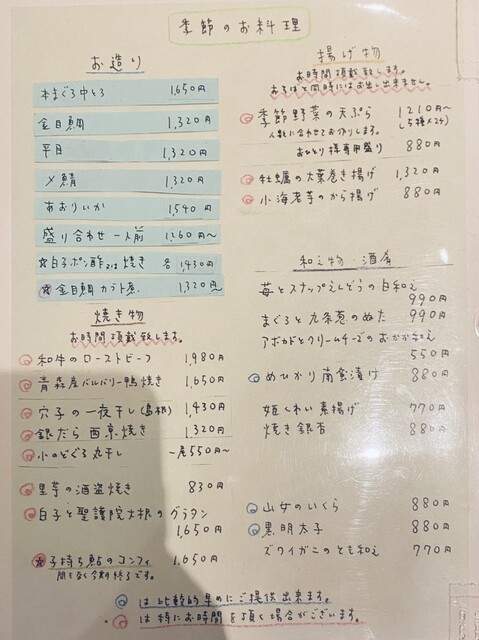 季節のお料理
お造り
本まぐろ中とろ 1,650円
金目鯛 1,320円
平目 1,320円
〆鯖 1,320円
あおりいか 1,540円
盛り合わせ 一人前 1,260円〜
☆白子ポン酢又は焼き 各1,430円
☆金目鯛カブト煮 1,320円〜
焼き物
お時間頂戴致します。
◎和牛のローストビーフ 1,980円
◎青森産バルバリー鴨焼き 1,650円
◎穴子の一夜干し(島根) 1,430円
◎銀だら西京焼き 1,320円
◎小のどぐろ丸干し 一尾550円〜
◎里芋の酒盗焼き 830円
◎白子と聖護院大根のグラタン
1,650円
☆子持ち鮎のコンフィ 1,650円
間もなく今期終了です。
揚げ物
お時間頂戴致します。
おそばと同時にはお出し出来ません。
◎季節野菜の天ぷら 1210円〜
人数に合わせてお作りします。
おひとり様専用盛り 880円
◎牡蠣の大葉巻き揚げ 1,320円
◎小海老芋のから揚げ 880円
和え物 酒肴
苺とスナップえんどうの白和え
990円
まぐろと九条葱のぬた 990円
アボカドとクリームチーズのおかか和え
550円
◎めひかり南蛮漬け 880円
姫くわい素揚げ 770円
焼き銀杏 880円
◎山女のいくら 880円
◎黒明太子 880円
ズワイガニのとも和え 770円
◎は比較的早めにご提供出来ます。
◎は特にお時間を頂く場合がございます。